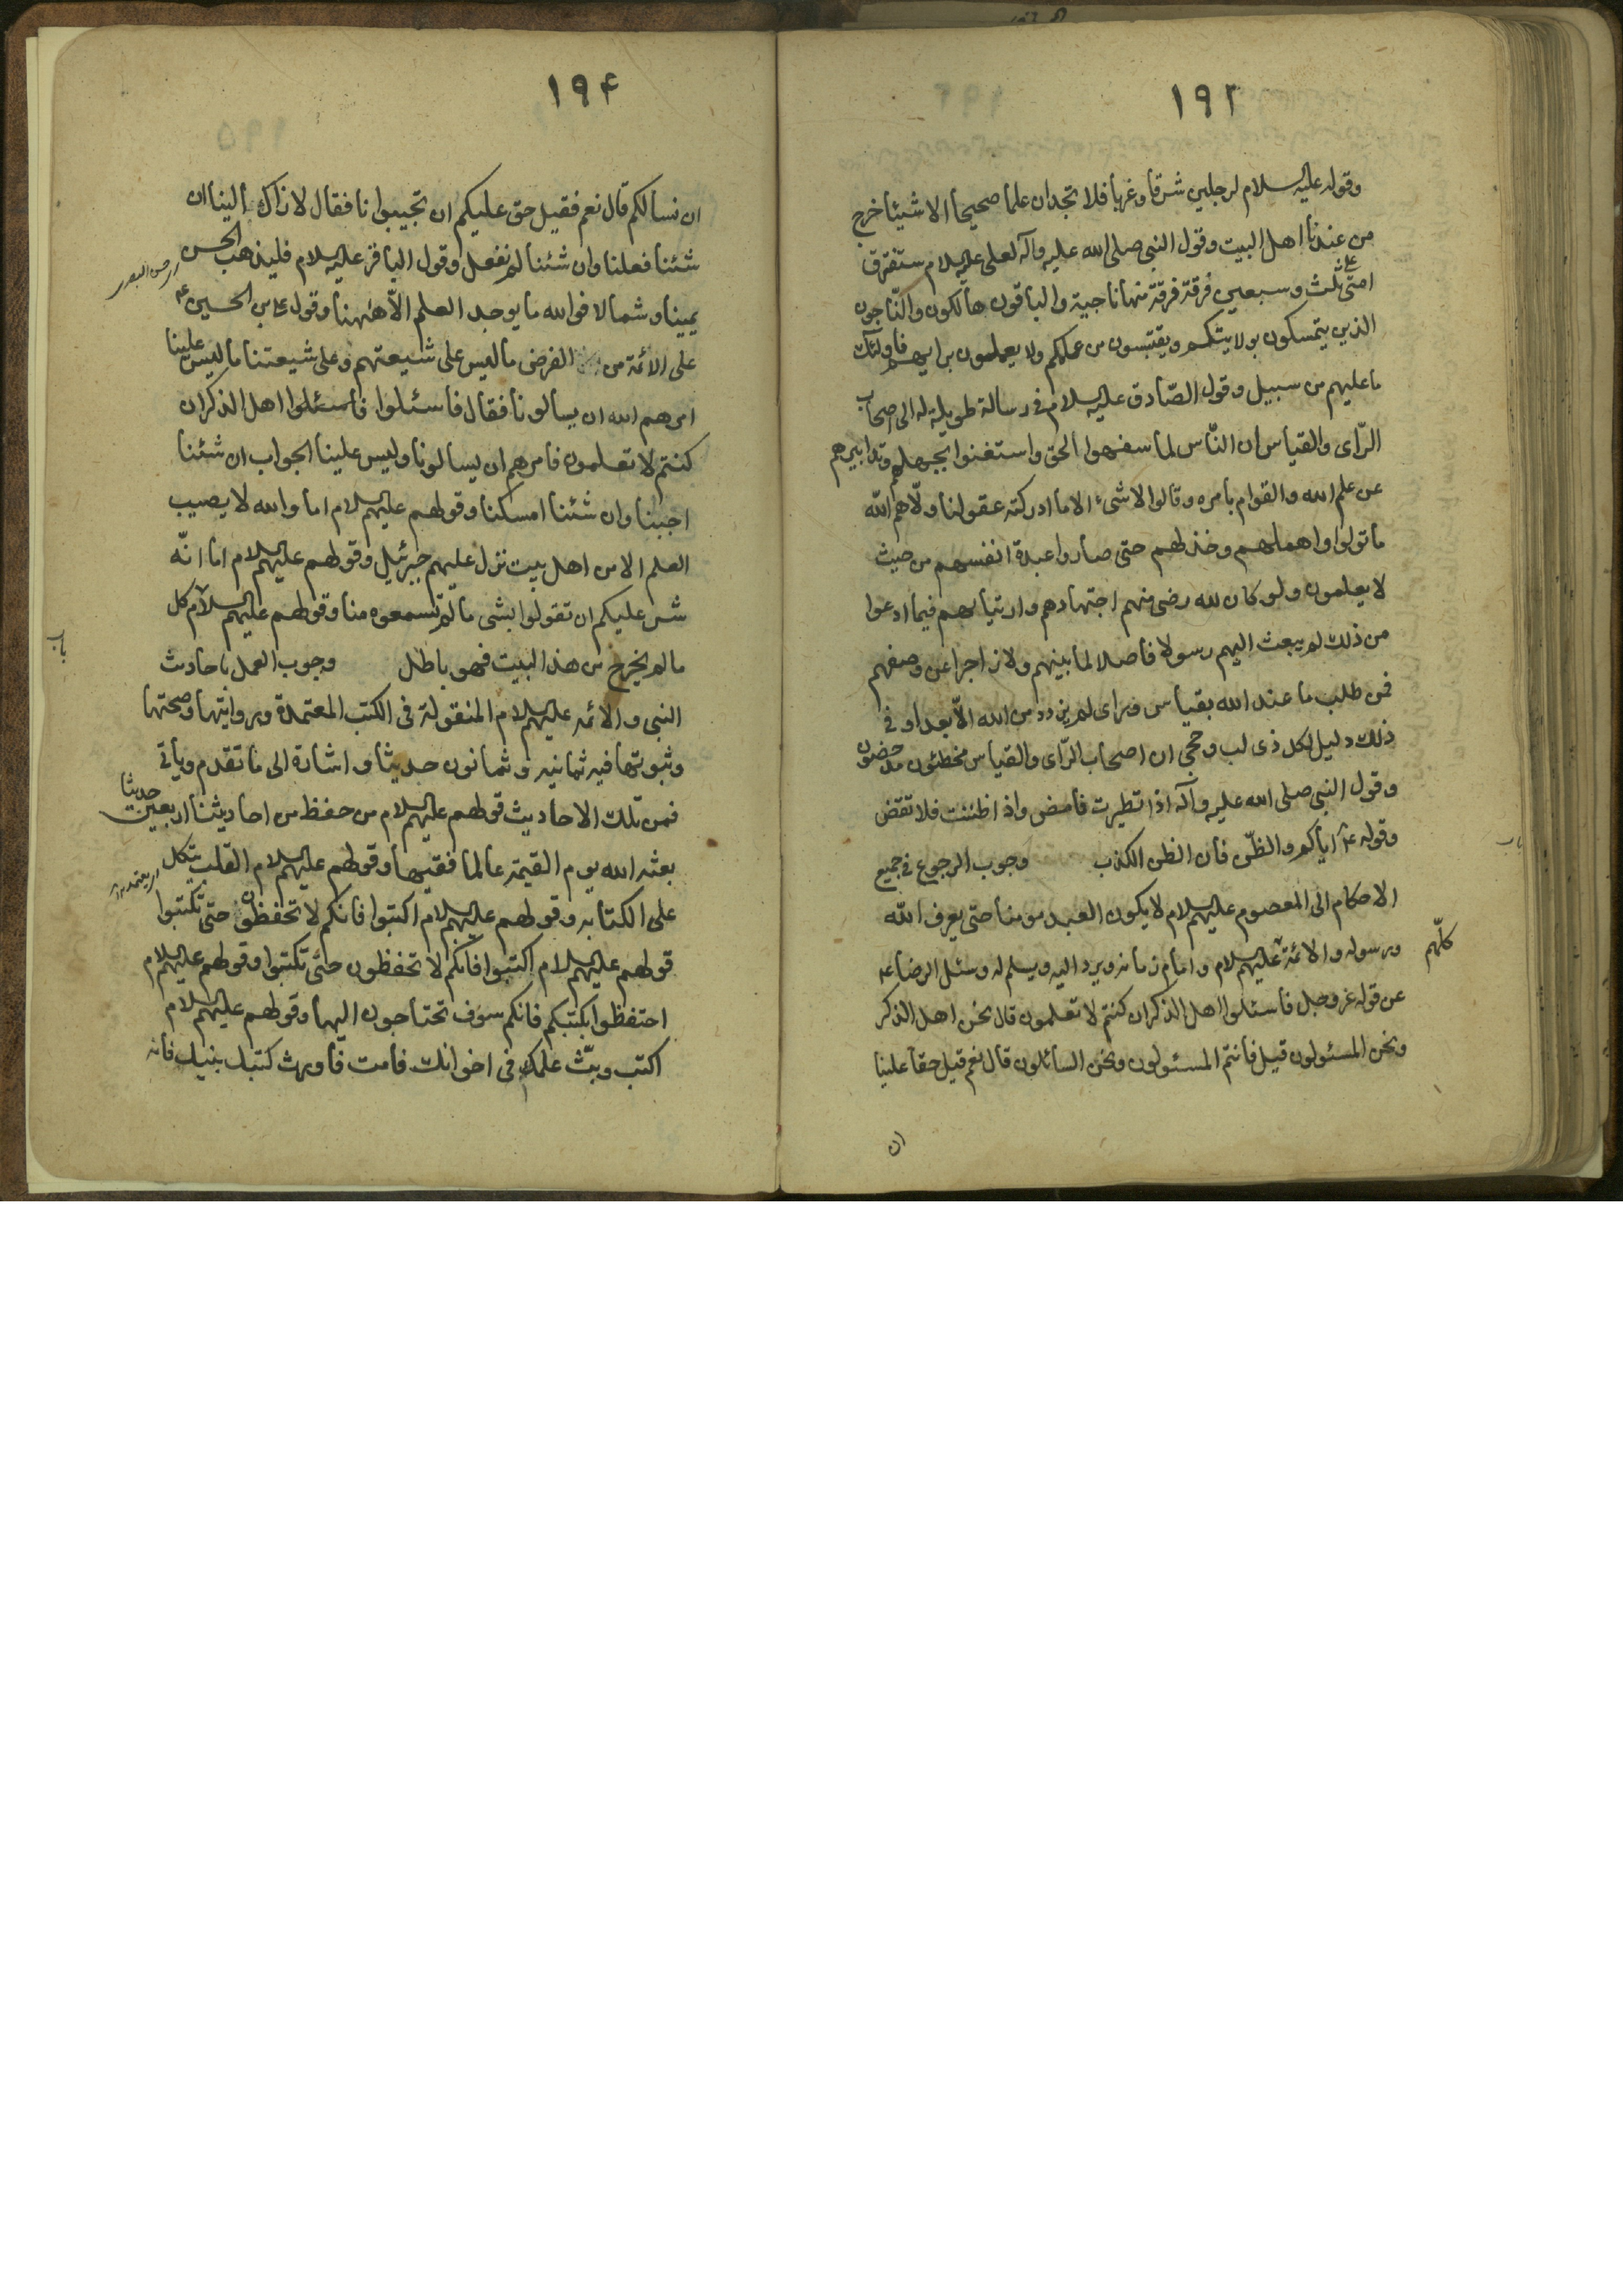 ١٩٢
وقوله عليه السلام لرجلين شرقا وغربا فلا تجدان علما صحيحا الا شيئا خرج
من عندنا اهل البيت وقول النبي صلى الله عليه وآله لعلى عليه السلام ستفترق
امتى على ثلث وسبعين فرقة فرقة منها ناجية والباقون هالكون والناجون
الذين يتمسكون بولايتكم ويقتبسون من علمكم ولا يعملون برايهم فاولئك
ما عليهم من سبيل وقول الصّادق عليه السلام فى رسالة طويلة له الى اصحاب
الرّاى والقياس ان النّاس لما سفهوا الحق واستغنوا بجهلهم وتدابيرهم
عن علم الله والقوام بامره وقالوا لا شىء الا ما ادركته عقولنا ولّاهم الله
ما تولوا واهملهم وخذلهم حتى صاروا عبدة انفسهم من حيث
لا يعلمون ولو كان لله رضى منهم اجتهادهم وارتياهم فيما ادعوا
من ذلك لم يبعث اليهم رسولا فاصلا لما بينهم ولا زاجرا عن وصفهم
فمن طلب ما عند الله بقياس وراى لم يزدد من الله الّا بعدا وفى
ذلك دليل لكل ذى لب وحجى ان اصحاب الرّاى والقياس مخطئون مدحضون
وقول النبي صلى الله عليه وآله اذا تطيرت فامض واذا ظننت فلا تقض
وقوله ع اياكم والظّن فان الظن الكذب وجوب الرجوع فى جميع
باب
الاحكام الى المعصوم عليهم السلام لا يكون العبد مومنا حتى يعرف الله
ورسوله والائمة عليهم السلام وامام زمانه ويرد اليه ويسلم له وسئل الرضا ع
كلّهم
عن قوله عز وجل فاسئلوا اهل الذكر ان كنتم لا تعلمون قال نحن اهل الذكر
ونحن المسئولون قيل فانتم المسئولون ونحن السائلون قال نعم قيل حقا علينا
ان
١٩٤
ان نسالكم قال نعم فقيل حق عليكم ان تجيبوا نا فقال لا ذاك الينا ان
شئنا فعلنا وان شئنا لم نفعل وقول الباقر عليه السلام فليذهب الحسن
يمينا وشمالا فوالله ما يوجد العلم الّا ههنا وقول على بن الحسين ع
على الائمة من الفرض ما ليس على شيعتهم وعلى شيعتنا ما ليس علينا
امرهم الله ان يسالونا فقال فاسئلوا فاسئلوا اهل الذكر ان
كنتم لا تعلمون فامرهم ان يسالونا وليس علينا الجواب ان شئنا
اجبنا وان شئنا امسكنا وقولهم عليهم السلام اما والله لا يصيب
العلم الا من اهل بيت نزل عليهم جبرئيل وقولهم عليهم السلام اما انّه
شر عليكم ان تقولوا بشى ما لم تسمعوه منا وقولهم عليهم السلام كل
ما لم يخرج من هذا البيت فهو باطل وجوب العمل باحاديث
باب
النبي والائمه عليهم السلام المنقولة فى الكتب المعتمدة وروايتها وصحتها
وثبوتها فيه ثمانيه وثمانون حديثا واشارة الى ما تقدم وياتى
فمن تلك الاحاديث قولهم عليهم السلام من حفظ من احاديثنا اربعين حديثا
بعثه الله يوم القيمة عالما فقيها وقولهم عليهم السلام القلب يتكل
على الكتابه وقولهم عليهم السلام اكتبوا فانكم لا تحفظون حتى تكتبوا
قولهم عليهم السلام اكتبوا فانكم لا تحفظون حتى تكتبوا وقولهم عليهم السلام
احتفظوا بكتبكم فانكم سوف تحتاجون اليها وقولهم عليهم السلام
اكتب وبثّ علمك فى اخوانك فامت فاورث كتبك بنيك فانه